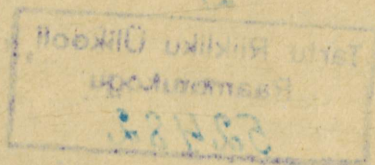 Tartu Riikliku Ülikooli
Raamatukogu
52482